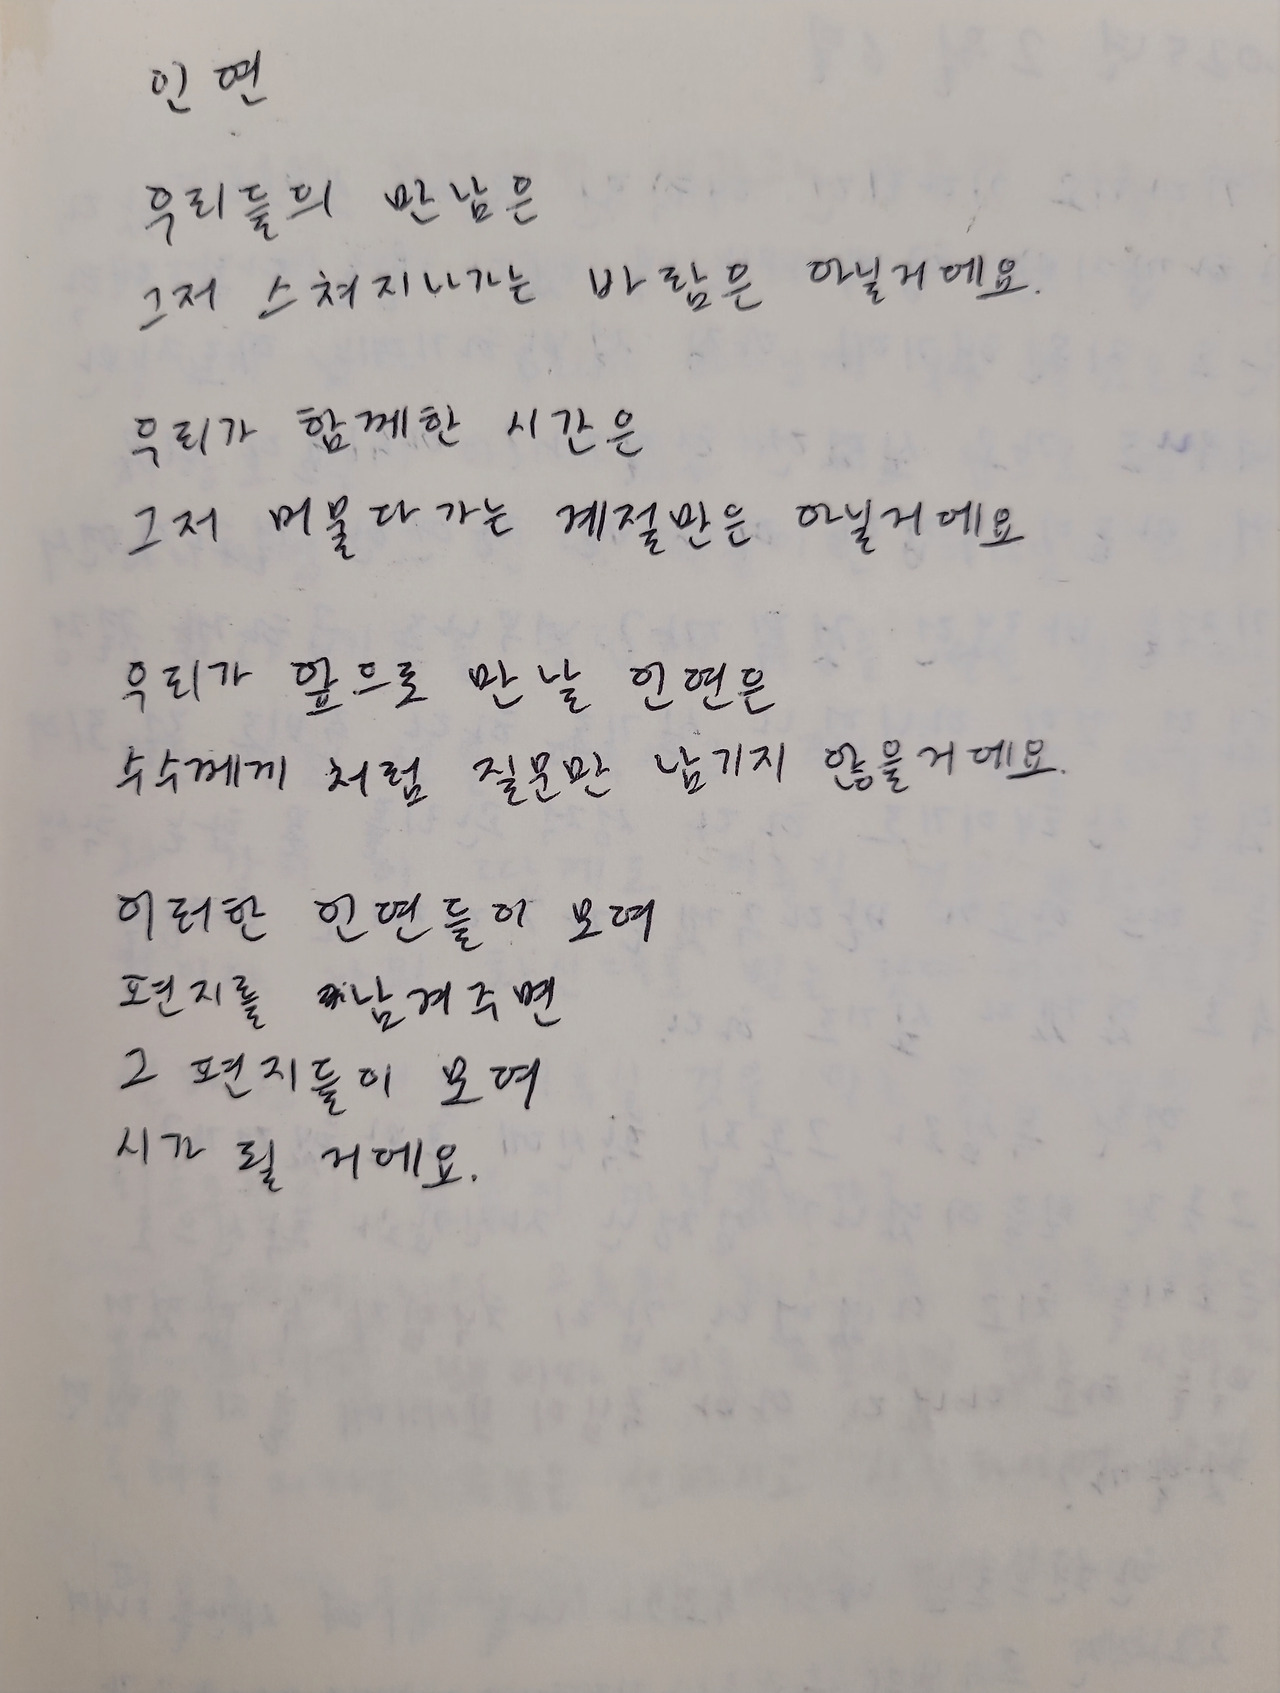 인연
우리들의 만남은
그저 스쳐지나가는 바람은 아닐거에요.
우리가 함께한 시간은
그저 머물다가는 계절만은 아닐거에요
우리가 앞으로 만날 인연은
수수께끼 처럼 질문만 남기지 않을거에요.
이러한 인연들이 모여
편지를 남겨주면
그 편지들이 모여
시가 될 거에요.